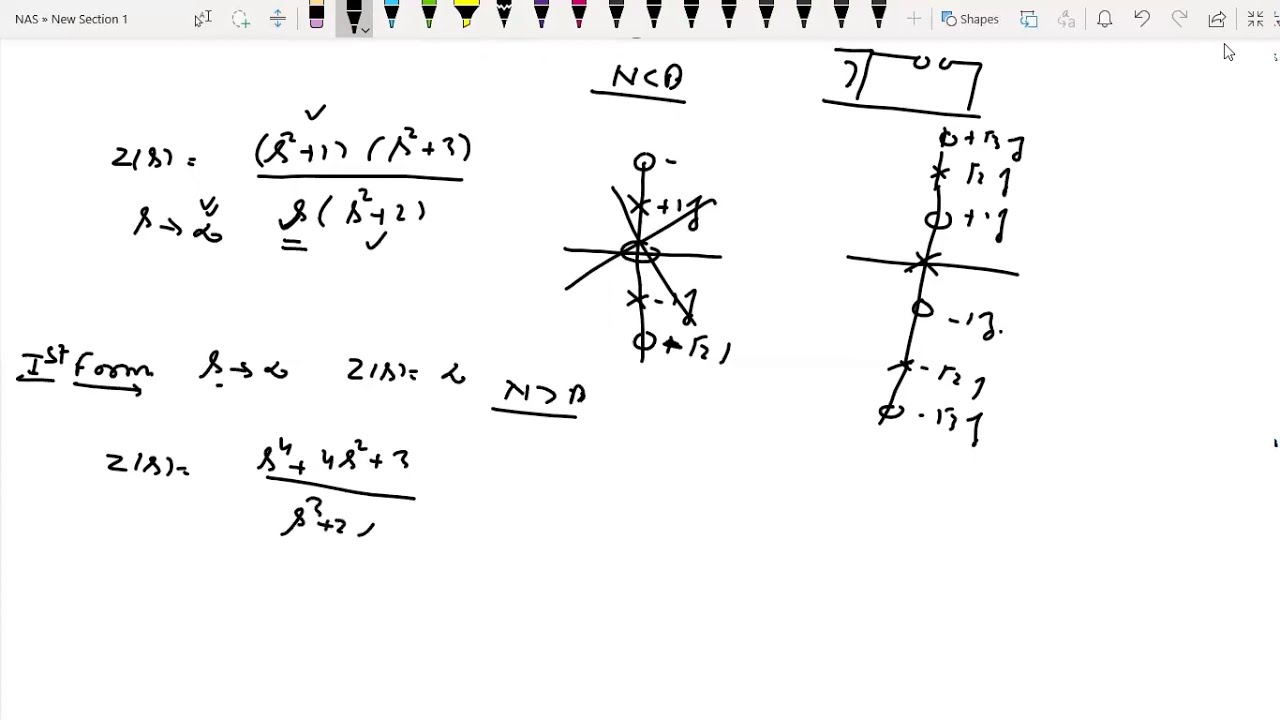 NAS » New Section 1
Shapes
N<D
Z(s) = (s²+1) (s²+3) / s(s²+2)
s→∞
+√3j
√2j
+1j
-1j.
-√2j
-√3j
-
+1j
-1j
√2j
Ist Form s→∞ Z(s)=∞ N>D
Z(s)= s⁴+4s²+3 / s³+2s